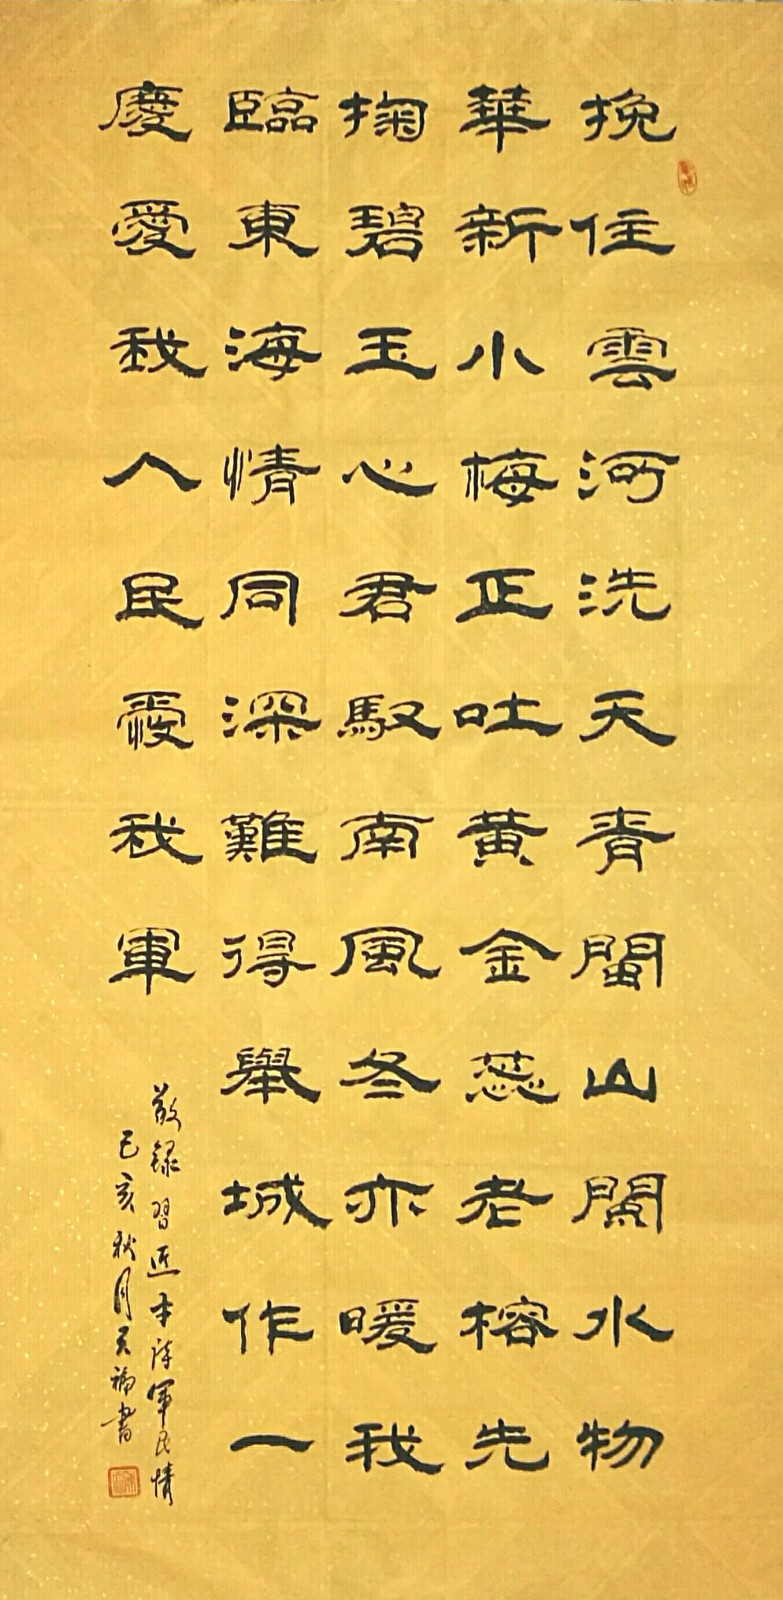 挽住雲河洗天青閩山閩水物
華新小梅正吐黄金蕊老榕先
掬碧玉心君馭南風冬亦暖我
臨東海情同深難得舉城作一
慶愛我人民愛我軍
敬録習近平詩軍民情
己亥秋月天福書